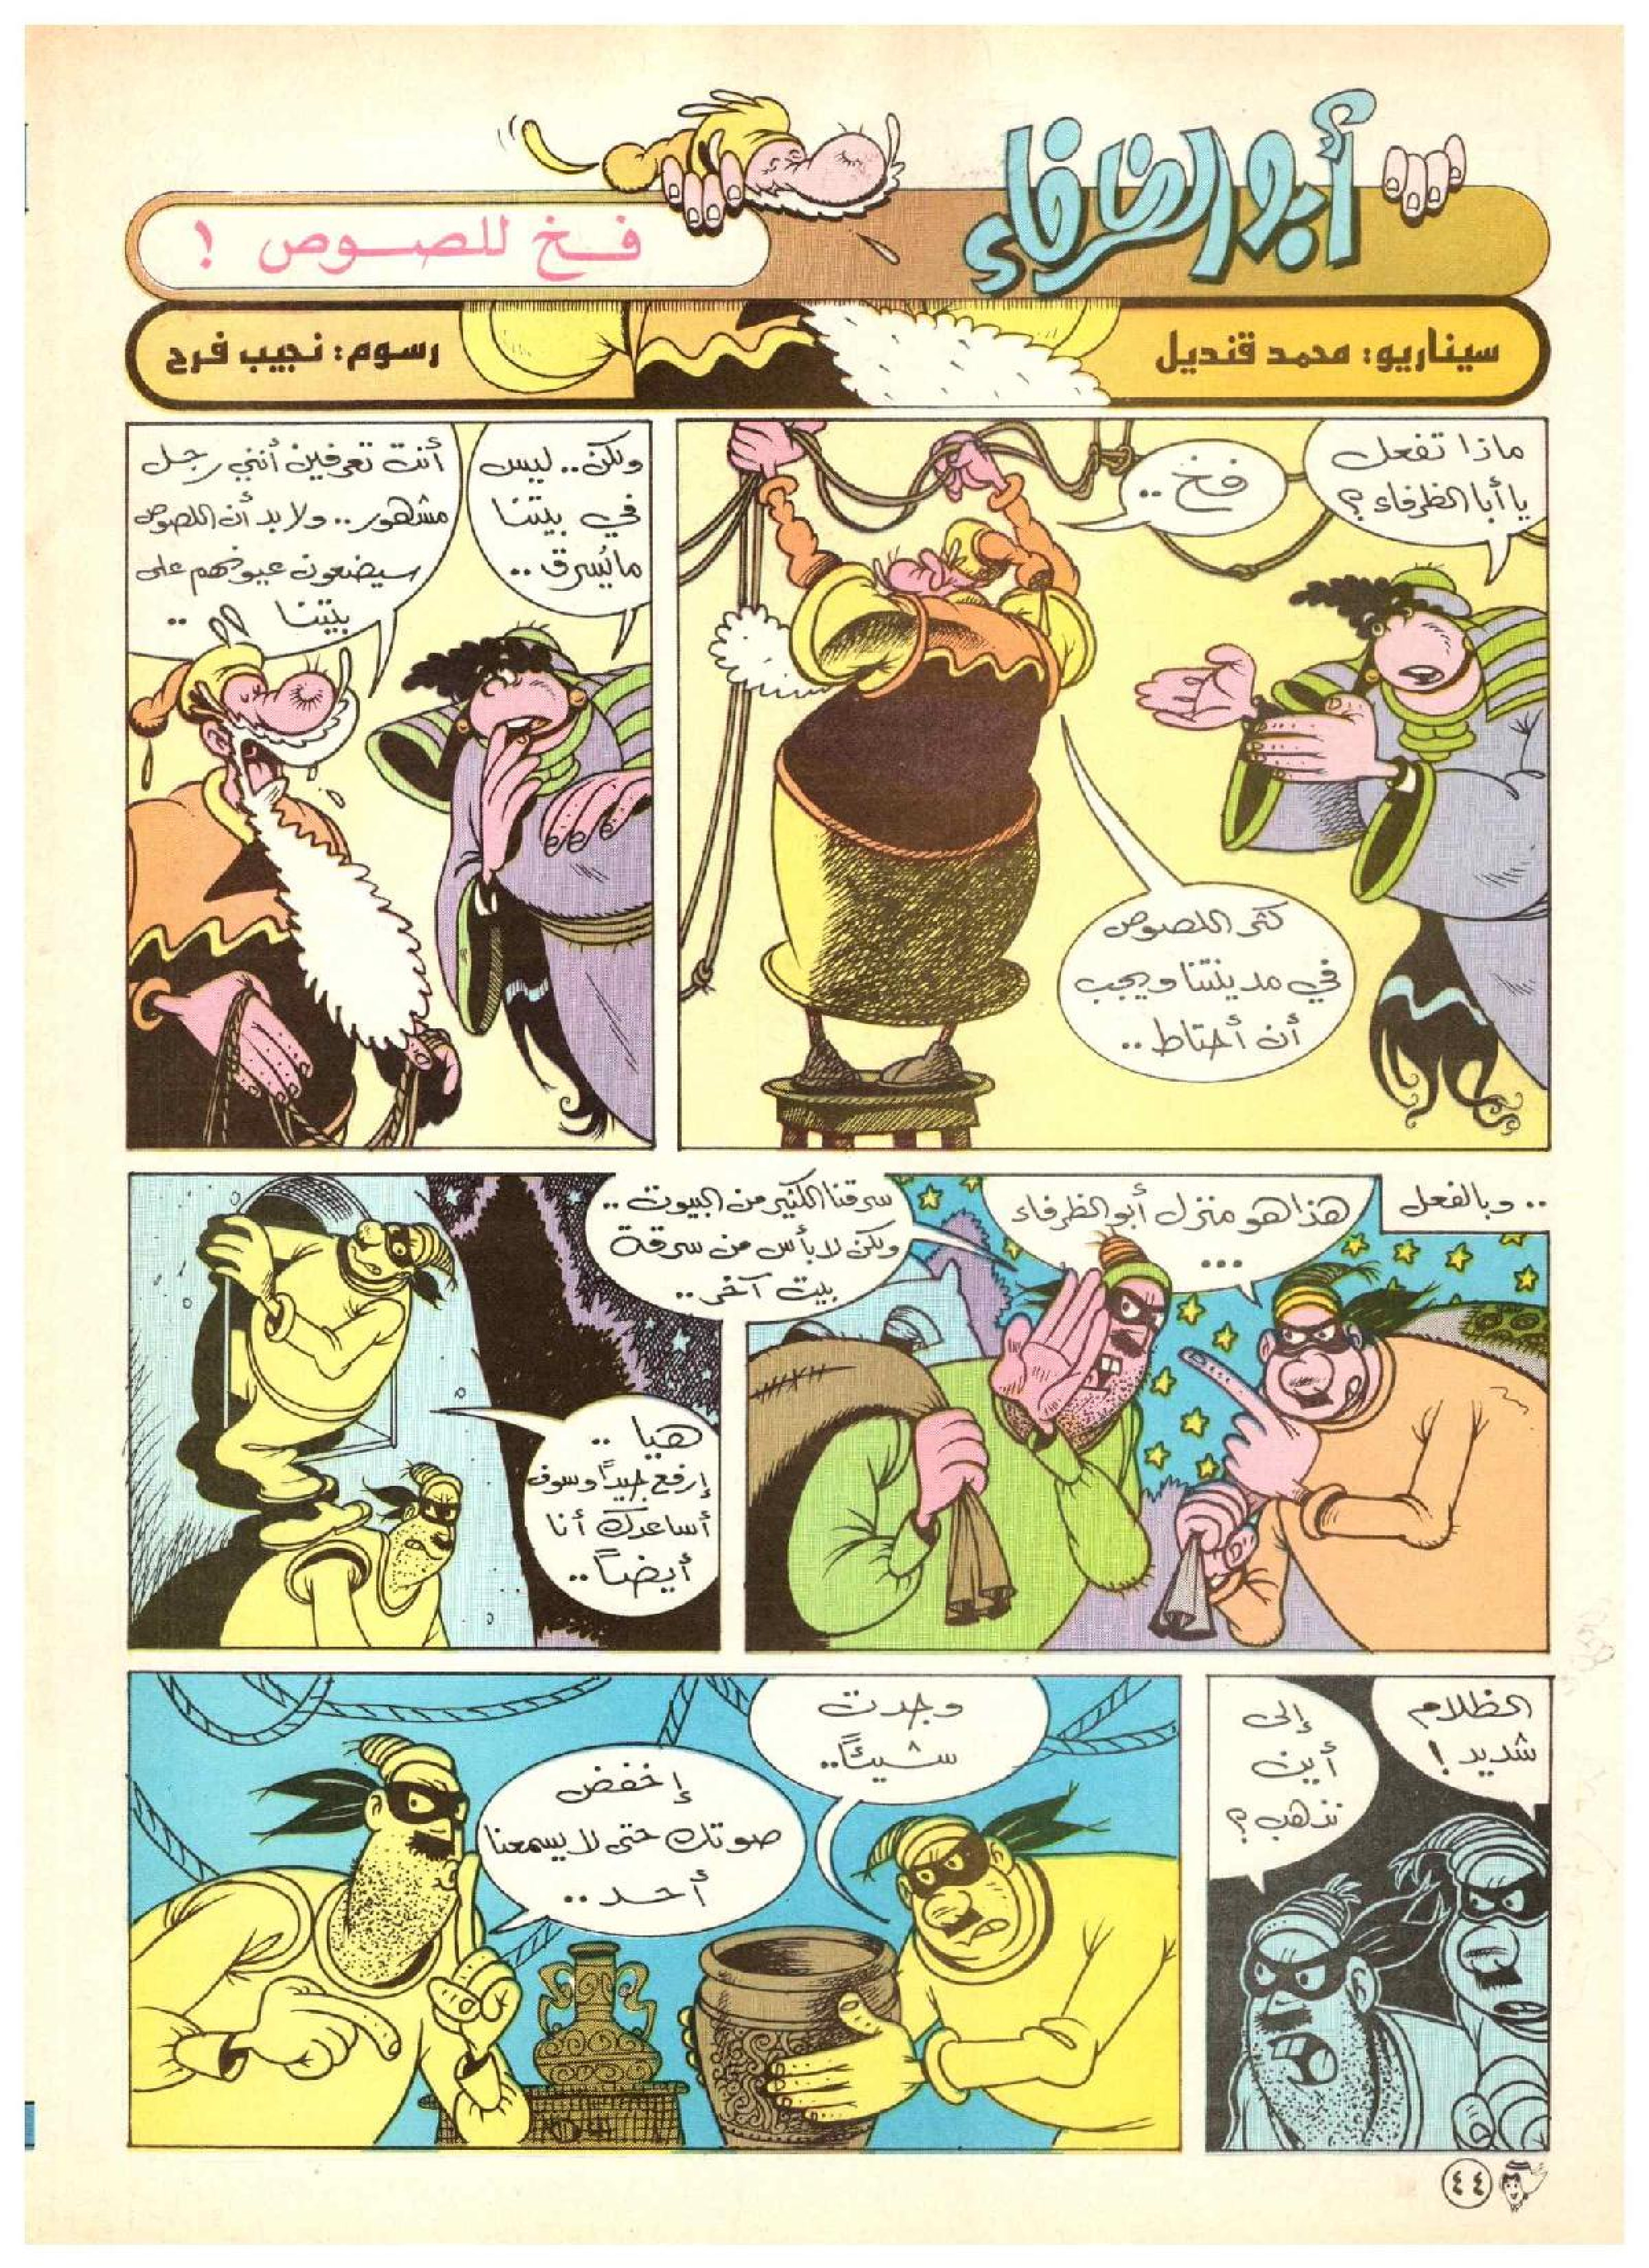 أبو الظرفاء
فخ للصوص !
سيناريو: محمد قنديل
رسوم: نجيب فرح
ماذا تفعل
يا أبا الظرفاء؟
فخ ..
كثر اللصوص
في مدينتنا ويجب
أن أحتاط ..
ولكن .. ليس
في بيتنا
مايُسرق ..
أنت تعرفين أنني رجل
مشهور .. ولا بد أن اللصوص
سيضعون عيونهم على
بيتنا ..
.. وبالفعل
هذا هو منزل أبو الظرفاء
...
سرقنا الكثير من البيوت ..
ولكن لا بأس من سرقة
بيت آخر ..
هيا ..
إرفع جيداً وسوف
أساعدك أنا
أيضاً ..
الظلام
شديد !
إلى
أين
نذهب؟
وجدت
شيئاً ..
إخفض
صوتك حتى لا يسمعنا
أحد ..
٤٤